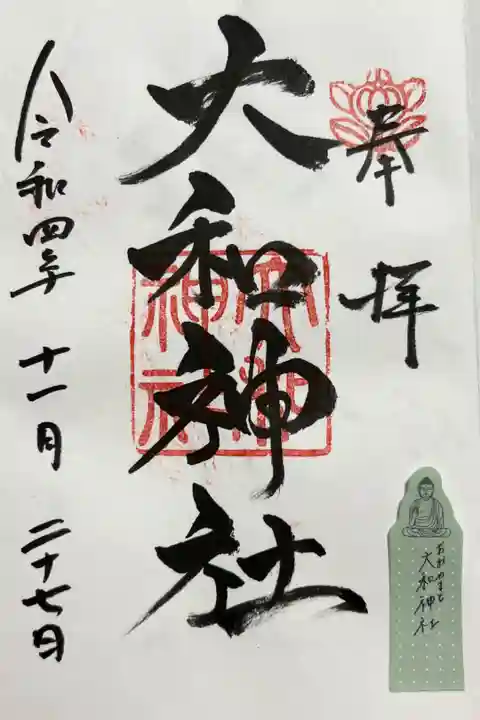 奉拝
大和神社
大和神社
令和四年 十一月 二十七日
大和神社